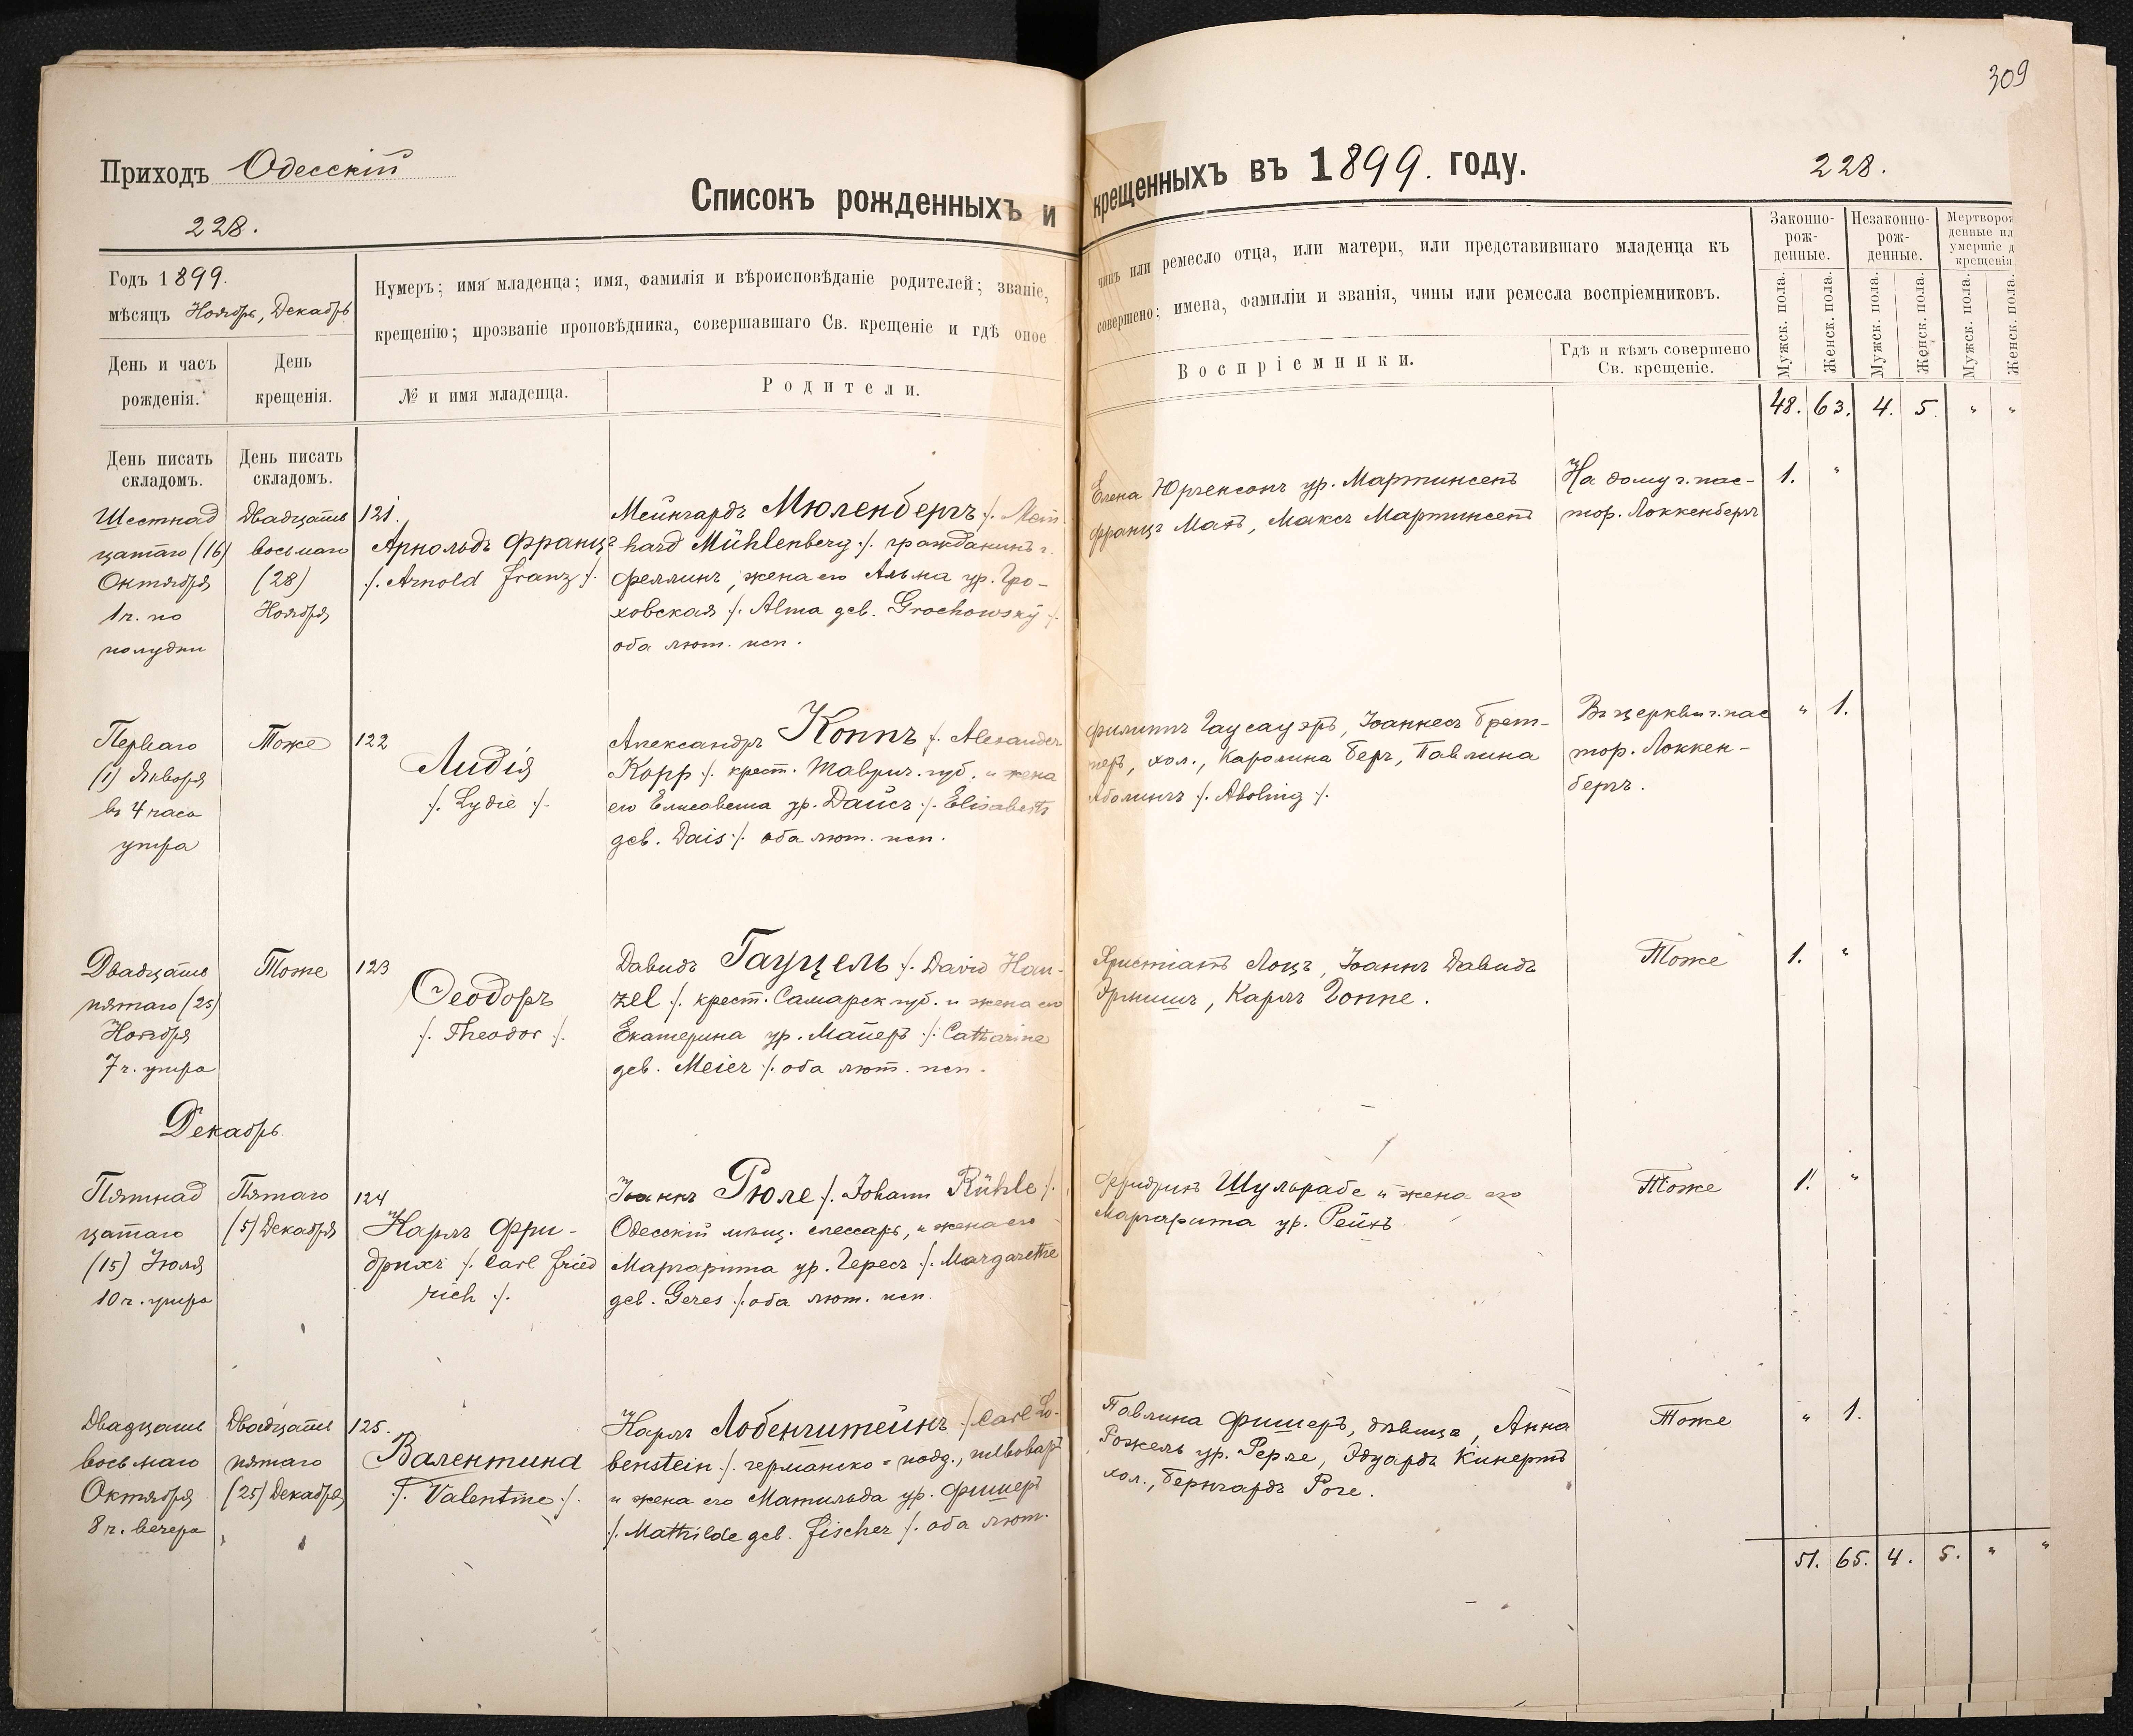 309
Приходъ Одесскій
228.
Списокъ рожденныхъ и крещенныхъ въ 1899. году.
228.
Годъ 1899.
мѣсяцъ Ноябрь, Декабрь
День и часъ рожденія.
День крещенія.
Нумеръ; имя младенца; имя, фамилія и вѣроисповѣданіе родителей; званіе,
крещенію; прозваніе проповѣдника, совершавшаго Св. крещеніе и гдѣ оное
№ и имя младенца.
Родители.
чинъ или ремесло отца, или матери, или представившаго младенца къ
совершено; имена, фамиліи и званія, чины или ремесла воспріемниковъ.
Воспріемники.
Гдѣ и кѣмъ совершено
Св. крещеніе.
Законно-
рож-
денные.
Незаконно-
рож-
денные.
Мертворож
денные ил
умершіе д
крещенія
Мужск. пола.
Женск. пола.
Мужск. пола.
Женск. пола.
Мужск. пола.
Женск. пола.
48. 63. 4. 5. " "
День писать
складомъ.
День писать
складомъ.
Шестнад
цатаго (16)
Октября
1 ч. по
полудни
Двадцать
восьмаго
(28)
Ноября
121.
Арнольдъ Францъ
/. Arnold Franz /.
Мейнгардъ Мюленбергъ /. Mein
hard Mühlenberg /. гражданинъ г.
Феллинъ, жена его Альма ур. Гро-
ховская /. Alma geb. Grochowsky /.
оба лют. исп.
Елена Юргенсонъ ур. Мартинсенъ
Францъ Матъ, Максъ Мартинсенъ
На дому г. пас-
тор. Локкенбергъ
1. "
Перваго
(1) Января
въ 4 часа
утра
Тоже
122
Лидія
/. Lydie /.
Александръ Коппъ /. Alexander
Kopp /. крест. Таврич. губ. и жена
его Елисовета ур. Даисъ /. Elisabeth
geb. Dais /. оба лют. исп.
Филиппъ Гаусауэръ, Іоаннесъ Брет-
неръ, хол., Каролина Беръ, Павлина
Аболингъ /. Aboling /.
Въ церкви г. пас
тор. Локкен-
бергъ.
" 1.
Двадцать
пятаго (25)
Ноября
7 ч. утра
Тоже
123
Ѳеодоръ
/. Theodor /.
Давидъ Гауцель /. David Hau-
zel /. крест. Самарск губ. и жена его
Екатерина ур. Майеръ /. Catharine
geb. Meier /. оба лют. исп.
Христіанъ Лоцъ, Іоаннъ Давидъ
Эрлишъ, Карлъ Гоппе.
Тоже
1. "
Декабрь
Пятнад
цатаго
(15) Іюля
10 ч. утра
Пятаго
(5) Декабря
124
Карлъ Фри-
дрихъ /. Carl Fried
rich /.
Іоаннъ Рюле /. Johann Rühle /.
Одесскій мѣщ. слессарь, и жена его
Маргарита ур. Гересъ /. Margarethe
geb. Geres /. оба лют. исп.
Фридрихъ Шульрабе и жена его
Маргарита ур. Рейхъ
Тоже
1. "
Двадцать
восьмаго
Октября
8 ч. вечера
Двадцать
пятаго
(25) Декабря
125.
Валентина
/. Valentine /.
Карлъ Лобенштейнъ /. Carl Lo-
benstein /. германско-подд., пивоваръ
и жена его Матильда ур. Фишеръ
/. Mathilde geb. Fischer /. оба лют.
Павлина Фишеръ, дѣвица, Анна
Рожель ур. Рерле, Эдуардъ Кинертъ
хол., Бернгардъ Роге.
Тоже
" 1.
51. 65. 4. 5. " "